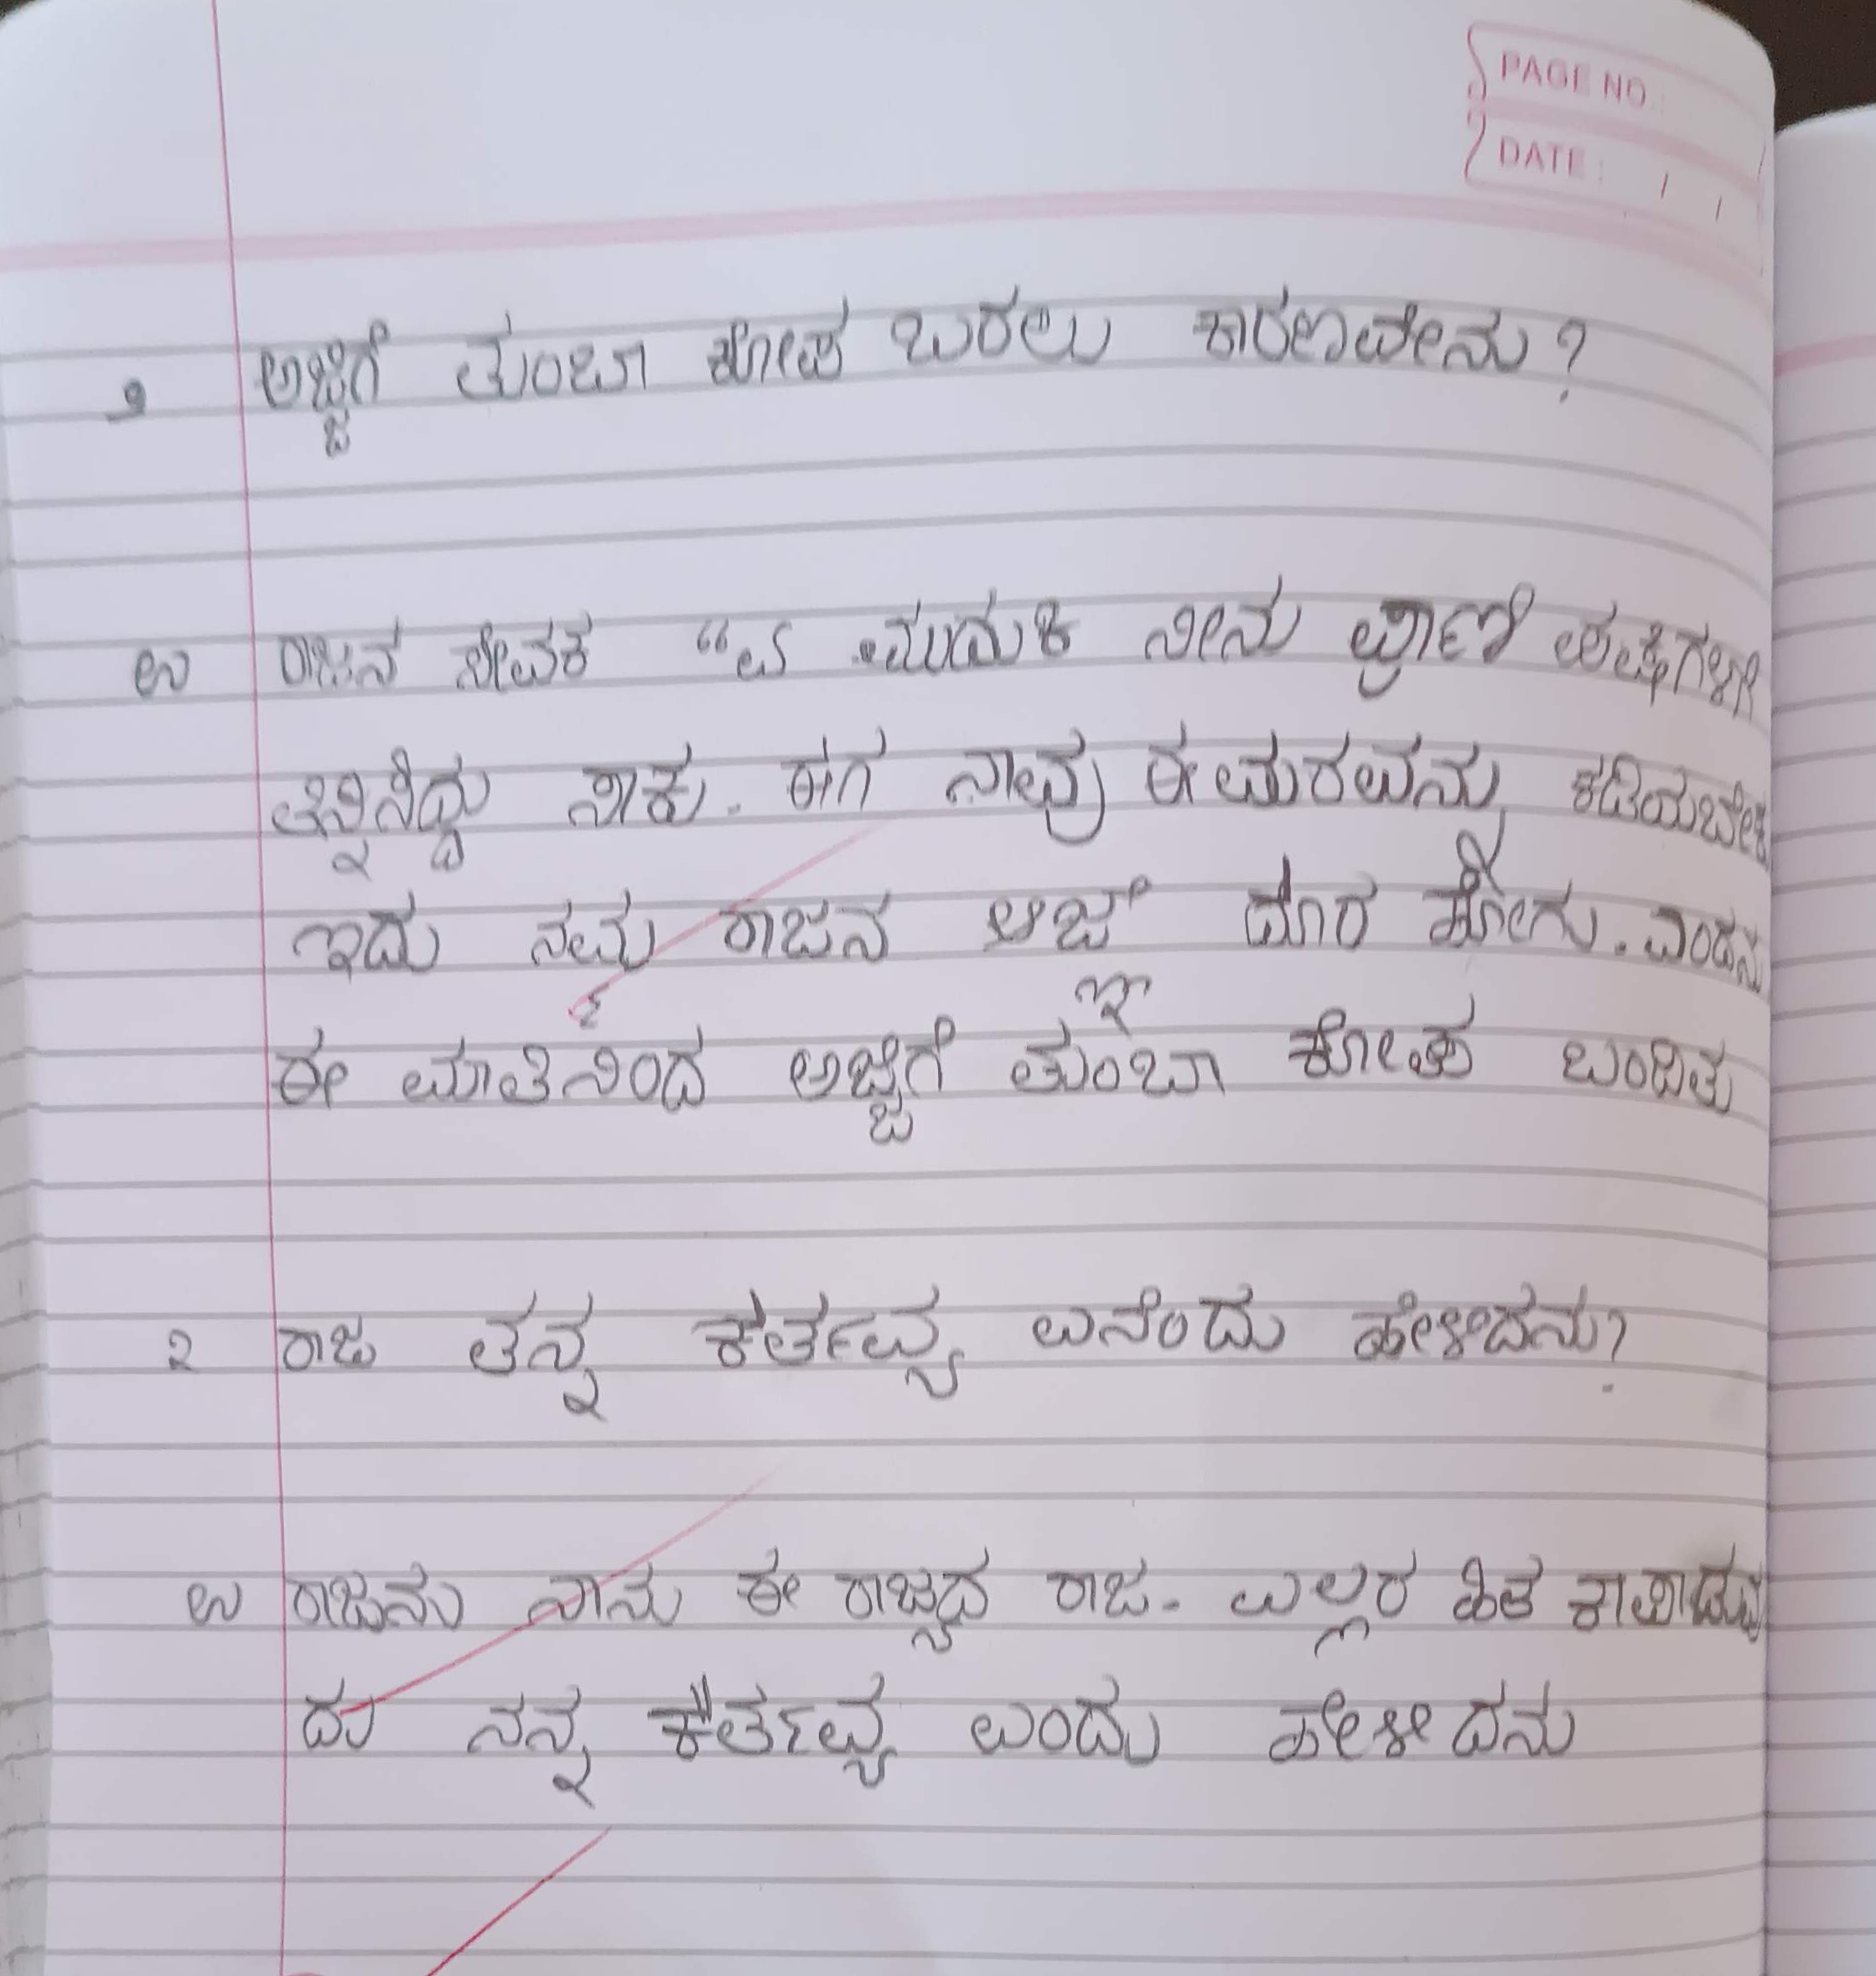 PAGE NO.:
DATE: / /
೧ ಅಜ್ಜಿಗೆ ತುಂಬಾ ಕೋಪ ಬರಲು ಕಾರಣವೇನು?
ಉ ರಾಜನ ಸೇವಕ “ಏ ಮುದುಕಿ ನೀನು ಪ್ರಾಣಿ ಪಕ್ಷಿಗಳಿಗೆ
ತಿನ್ನಿಸಿದ್ದು ಸಾಕು. ಈಗ ನಾವು ಈ ಮರವನ್ನು ಕಡಿಯಬೇಕು
ಇದು ನಮ್ಮ ರಾಜನ ಆಜ್ಞೆ ದೂರ ಹೋಗು. ಎಂದನು
ಈ ಮಾತಿನಿಂದ ಅಜ್ಜಿಗೆ ತುಂಬಾ ಕೋಪ ಬಂದಿತು
೨ ರಾಜ ತನ್ನ ಕರ್ತವ್ಯ ಏನೆಂದು ಹೇಳಿದನು?
ಉ ರಾಜನು ನಾನು ಈ ರಾಜ್ಯದ ರಾಜ. ಎಲ್ಲರ ಹಿತ ಕಾಪಾಡುವು
ದು ನನ್ನ ಕರ್ತವ್ಯ ಎಂದು ಹೇಳಿದನು